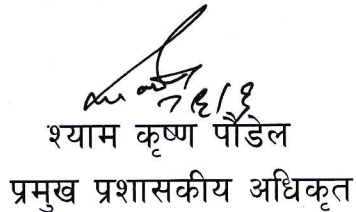 श्याम कृष्ण पौडेल
प्रमुख प्रशासकीय अधिकृत